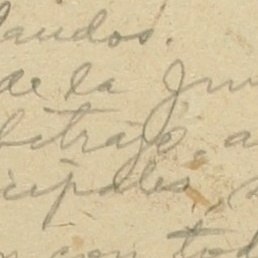 laudos.
de la Jun
bitraje, a
cipales,
con tod